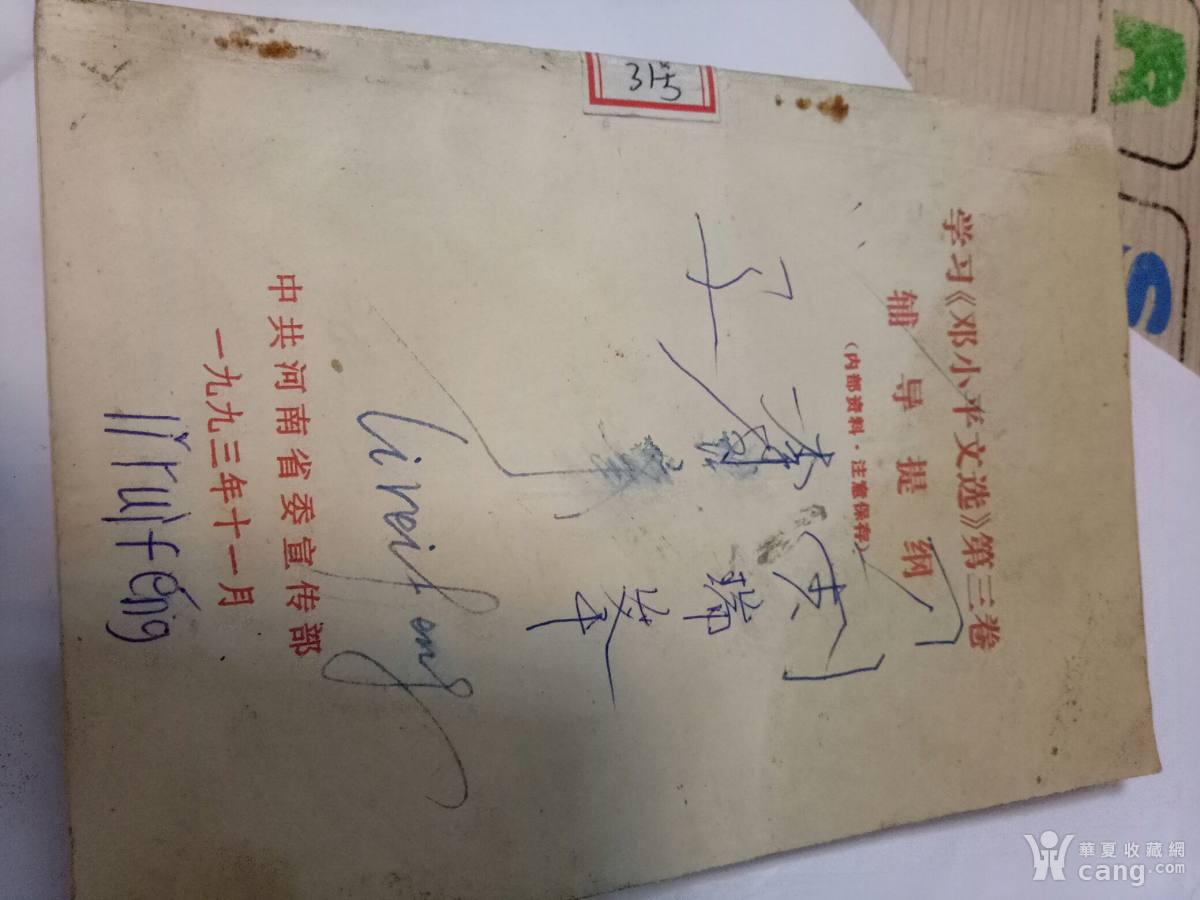 31号
学习《邓小平文选》第三卷
辅导提纲
（内部资料·注意保存）
李
瑞
峰
liruifeng
中共河南省委宣传部
一九九三年十一月
liruifeng
R
S
華夏收藏網
cang.com